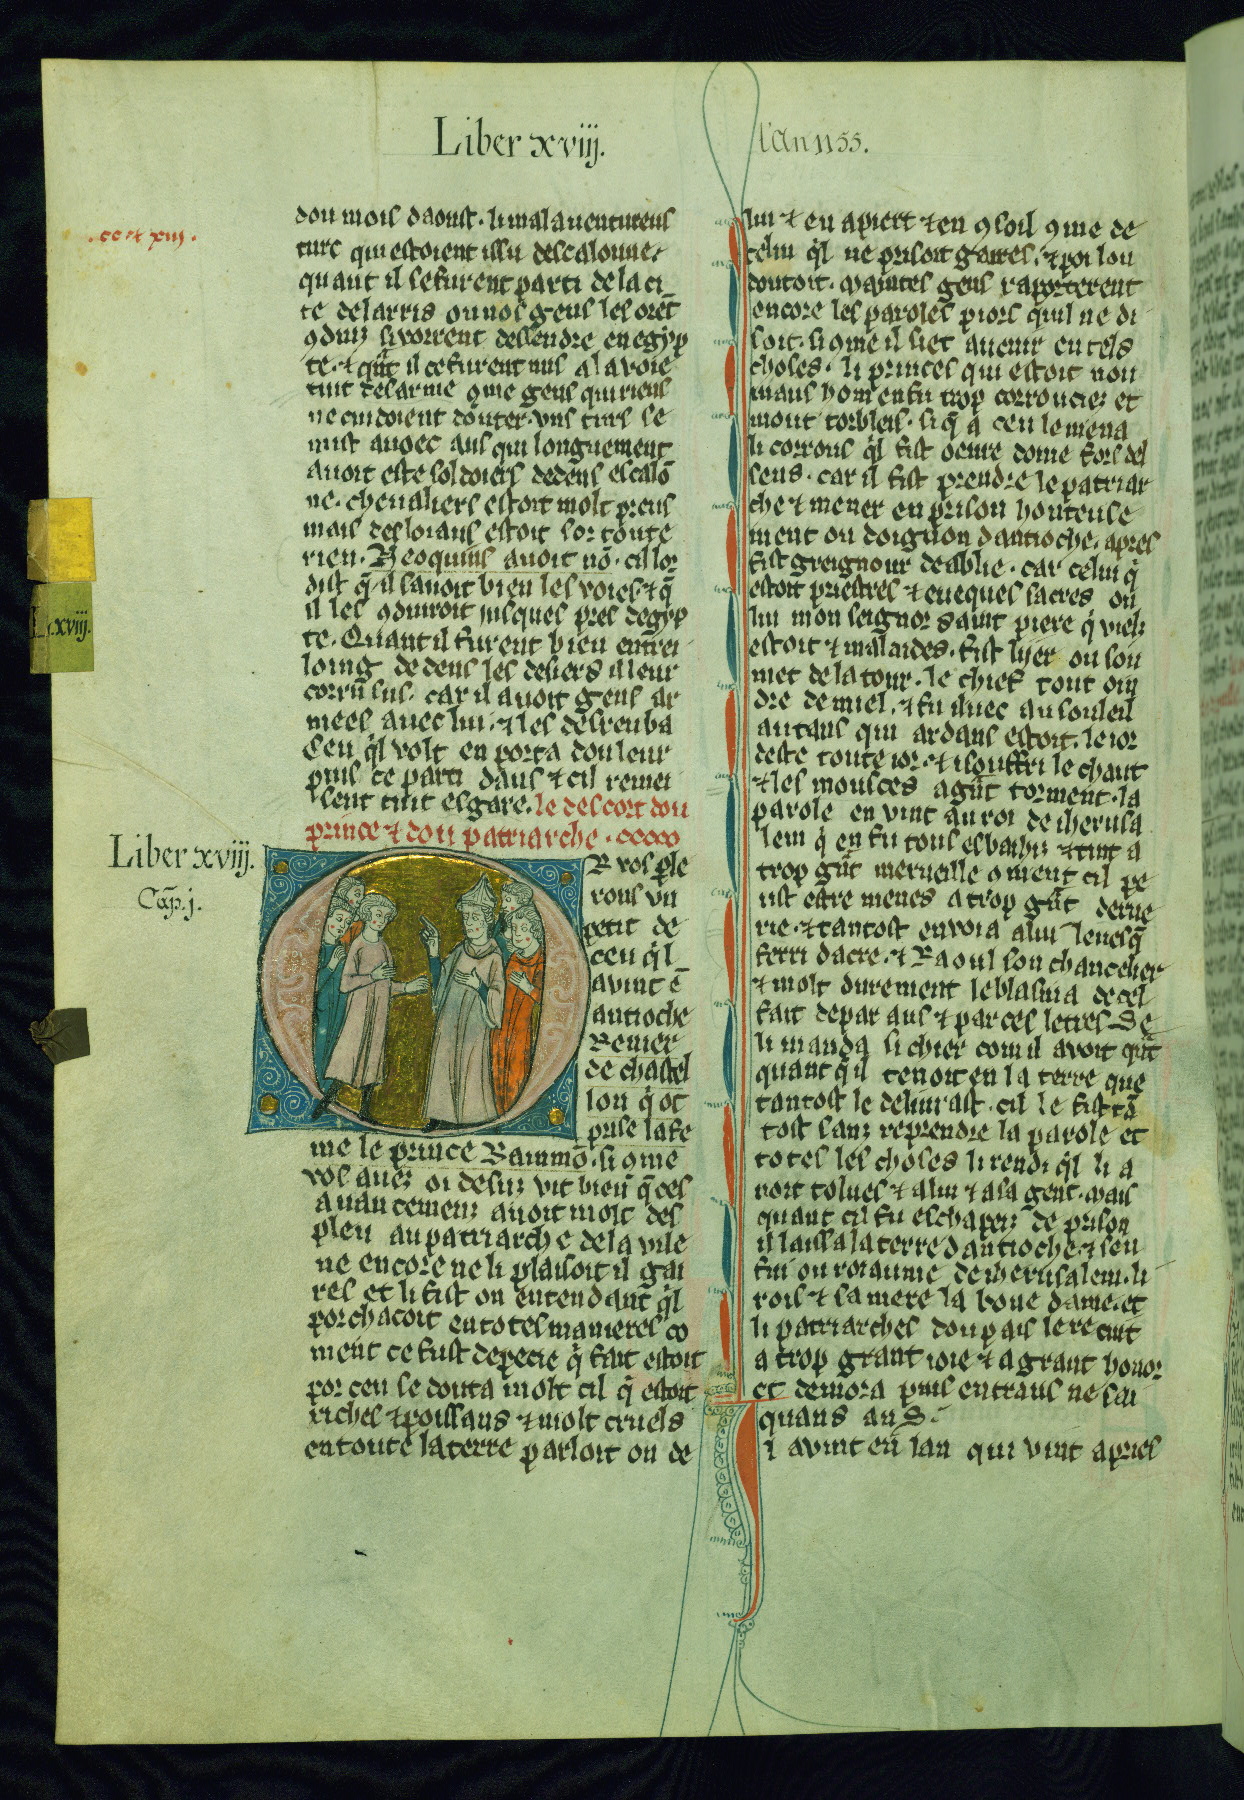 Liber xviij.
l'an 1155.
.cc & xiij.
dou mois daoust. li mal auentureus
turc qui estoient issu descalonne.
quant il se furent parti de la ci
te de larris ou nos gens les orēt
9duiz si vorrent dessendre en egyp
te. & qūt il ce furent mis a la voie
tuit desarme 9me gens qui riens
ne cuidoient douter. vns turs se
mist auoec aus qui longuement
auoit este soldoiers dedens escalō
ne. cheualiers estoit molt preus
mais desloiaus estoit sor toute
rien. Neoquins auoit nō. cil lor
dist q̄ il sauoit bien les voies. & q̄
il les 9duiroit jusques pres degyp
te. Quant il furent bien entrei
loing dedens les desiers il leur
corrū sus. car il auoit gens ar
mees auec lui. & les desreuba
Ceu q̄l volt en porta dou leur
puis ce parti daus & cil remei
sent tuit esgare. le descort dou
prince & dou patriarche. ccccc
Liber xviij.
Cap. j.
R vos ple
rons vn
petit de
ceu q̄l
auint ē
antioche
Renier
de chastel
lon q̄ ot
prise la fe
me le prince Raimmō. si 9me
vos auez oi desuz vit bien q̄ ces
auancemenz auoit molt des
pleu au patriarche de la vile
ne encore ne li plaisoit il gai
res et li fist on entendant q̄l
porchacoit en totes manieres co
ment ce fust depecie q̄ fait estoit
por ceu se douta molt cil q̄ estoit
riches & poissans & molt cruels
en toute la terre parloit on de
lui & en apiert & en 9soil 9me de
celui q̄l ne prisoit gaires. & poi lou
doutoit. maintes gens raporterent
encore les paroles piors quil ne di
soit. si 9me il siet auenir en tels
choses. li princes qui estoit nou
miaus hom en fu trop corrouciez et
mout torbleis. si q̄ a ceu le mena
li corrous q̄l fist oeure dome fors del
sens. car il fist prendre le patriar
che & mener en prison honteuse
ment ou doignon dantioche. apres
fist greignour deablie. car celui q̄
estoit priestres & eueques sacres ou
lui mon seignor saint piere q̄ vielz
estoit & malaides. fist lyer ou son
met de la tour. le chief tout oin
dre de miel. & fu iluec au souleil
autans qui ardans estoit. le ior
deste toute ior. & i souffri le chaut
& les mousces a gūt torment. la
parole en vint au roi de iherusa
lem q̄ en fu tous esbaihiz & tint a
trop gūt merueille 9ment cil pe
ust estre menes a trop gūt derue
rie. & tantost enuoia a lui leuesq̄
ferri dacre. & Raoul son chancelier
& molt durement le blasma de cel
fait depar aus & par ces letres Se
li manda si chier com il auoit qūt
quant q̄ il tenoit en la terre que
tantost le deliurast. cil le fist tā
tost sanz reprendre la parole et
totes les choses li rendi q̄l li a
uoit tolues & a lui & a sa gent. mais
quant cil fu eschapeiz de prison
il laissa la terre dantioche. & sen
fui ou roiaume de iherusalem. li
rois & sa mere la bone dame. et
li patriarches dou pais le recuit
a trop grant ioie & a grant honor
et demora puis entraus ne sai
quans anS.
i auint en lan qui vint apries
L. xviij.